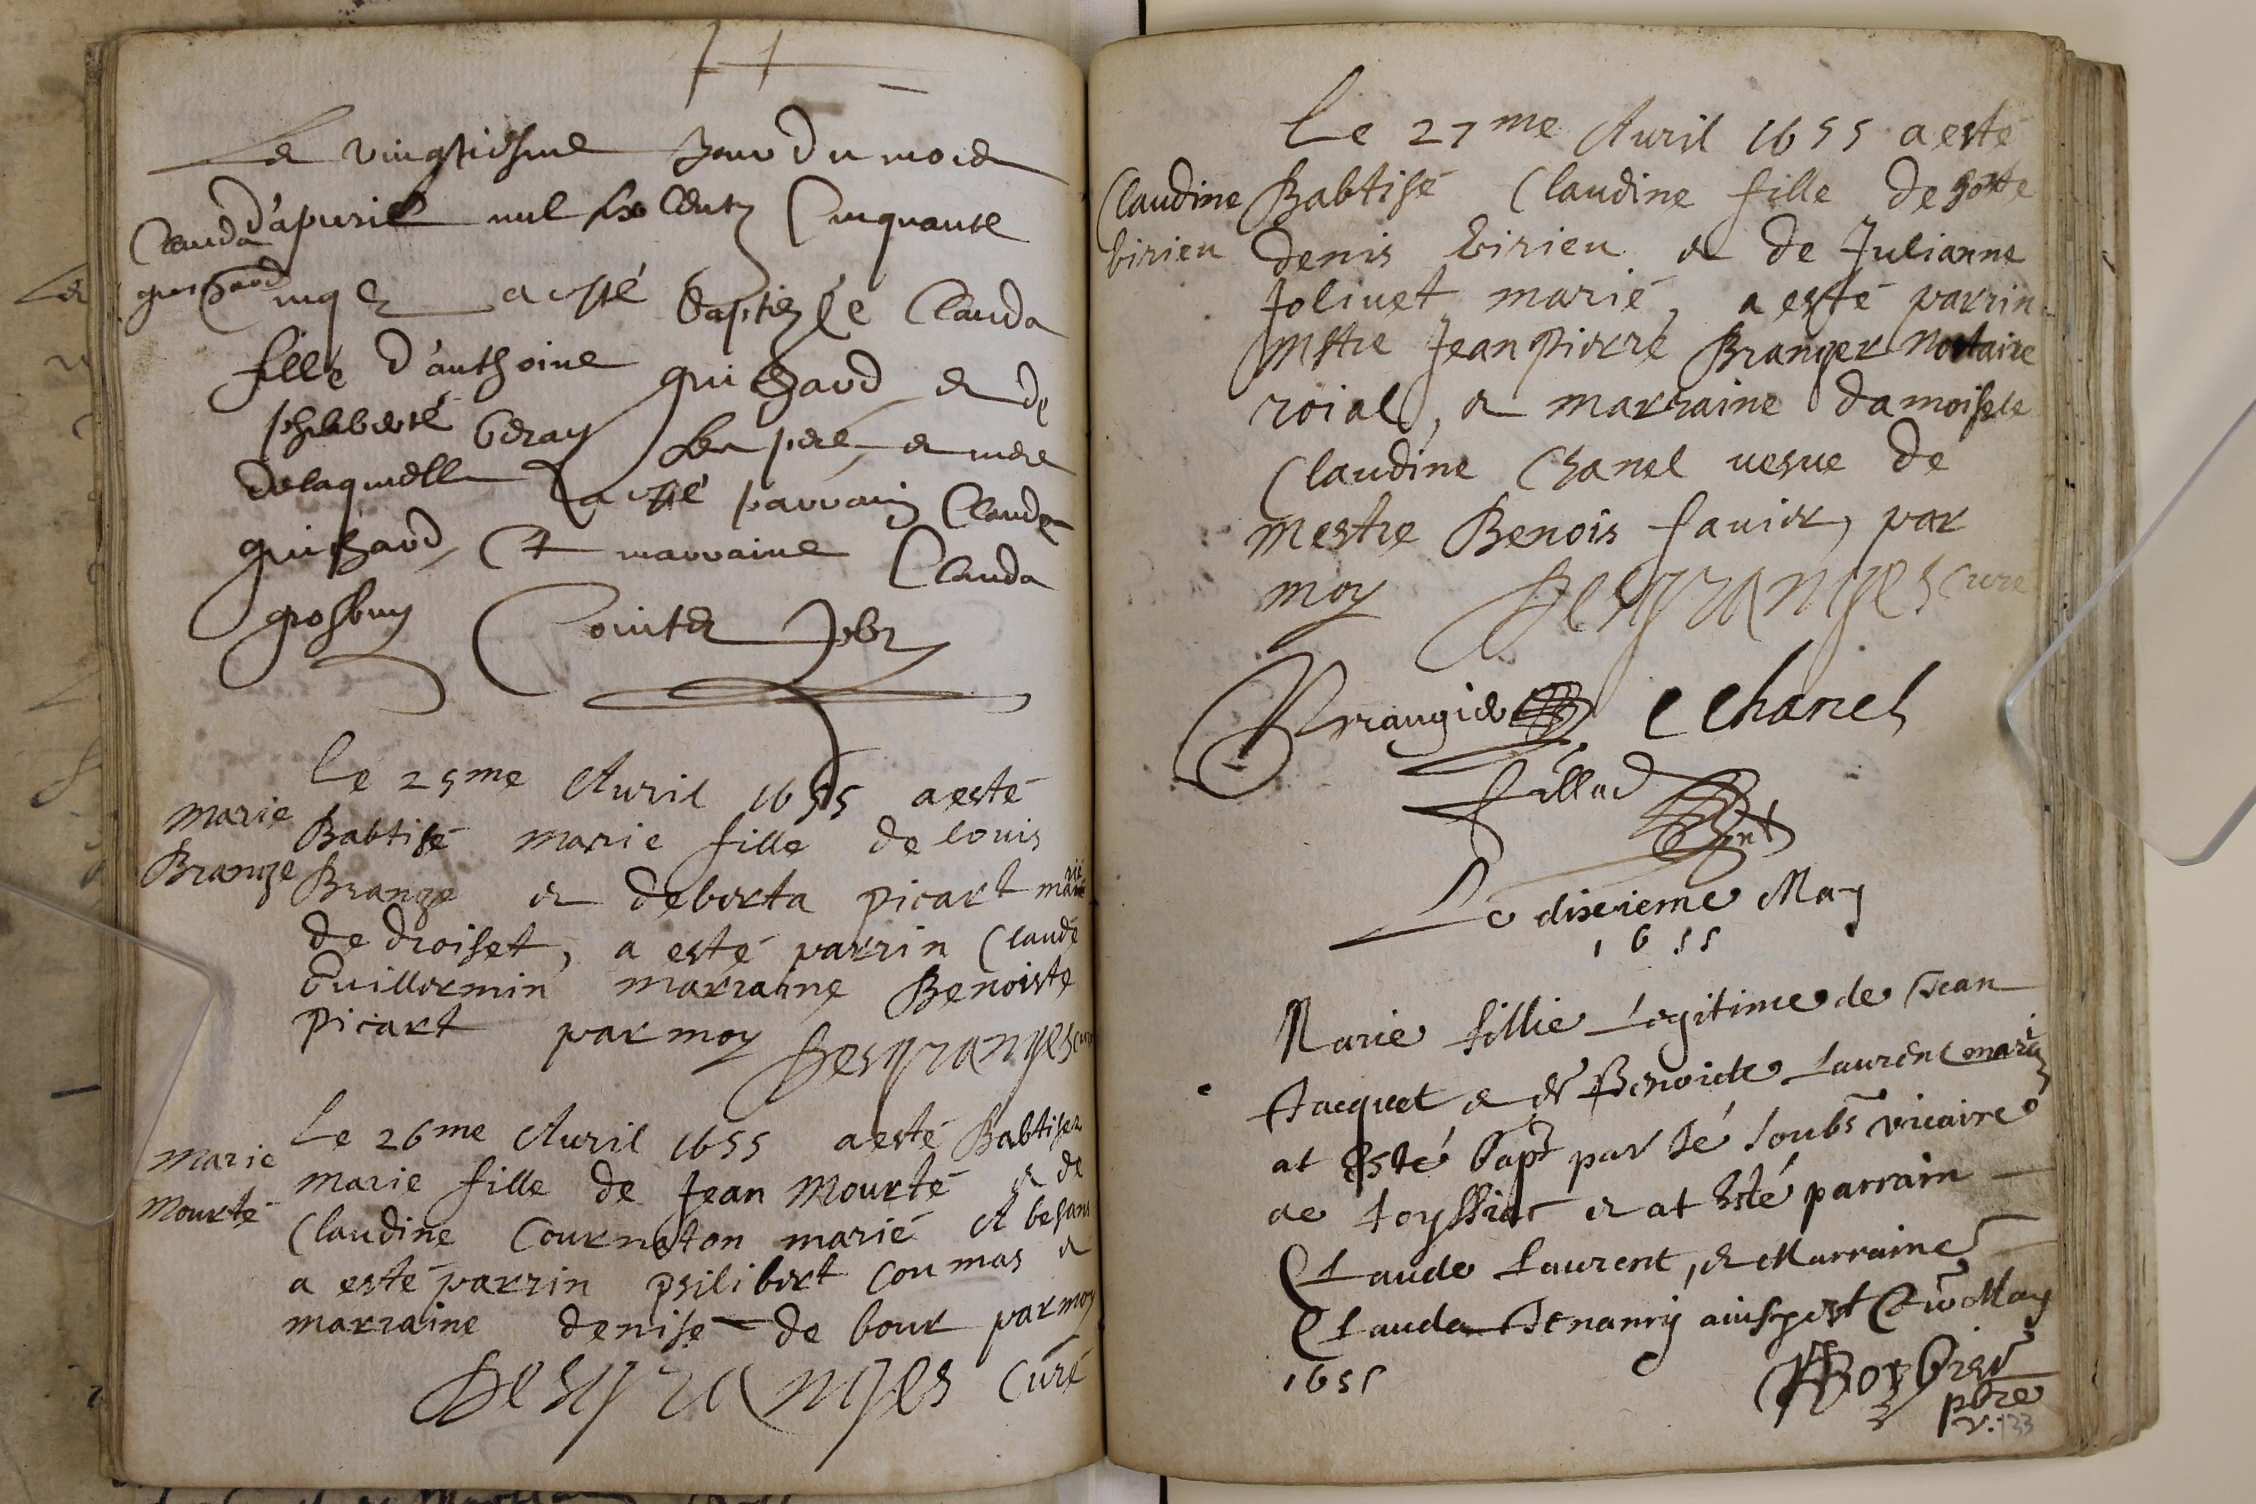 Le vingtiesme Jour du mois
Clauda
guichard
d'apvril mil six centz Cinquante
Cinq et a esté baptizée Clauda
fille d'anthoine guichard et de
philiberte beray ses pere et mere
de laquelle a esté parrain Claude
guichard, Et marraine Clauda
grosbuy Cointet pbr
Marie
Brange
Le 25me Avril 1655 a esté
Babtisé marie fille de louis
Brange et de berta picart marié
de droiset, a esté parrin Claude
Guillermin marraine Benoiste
picart par moy Desgranges curé
Marie
Mourté
Le 26me Avril 1655 a esté Babtisez
marie fille de Jean Mourté et de
Claudine Cournaton marié A besans
a esté parrin psilibert Coumas et
marraine denise de bour par moy
Desgranges Curé
Claudine
Virieu
Le 27me Avril 1655 a esté
Babtisé Claudine fille de
denis Virieu et de Julianne
Jolivet marié, a esté parrin
Mstre Jean pierre Branger Nottaire
roial, et marraine damoisele
Claudine Chanel vesve de
mestre Benois favier, par
moy Desgranges Curé
Brangier C Chanel
fillod
Le dixieme May
1655
Marie fillie Legitime de Jean
Jacquet et de Benoicte Laurent mariés
at Esté bapt par Je soubs vicaire
de Toyssiat et at Esté parrain
Claude Laurent, et Marraine
Clauda Jenanry ainsy est Ce May
1655
Borbier
pbre
v. 133